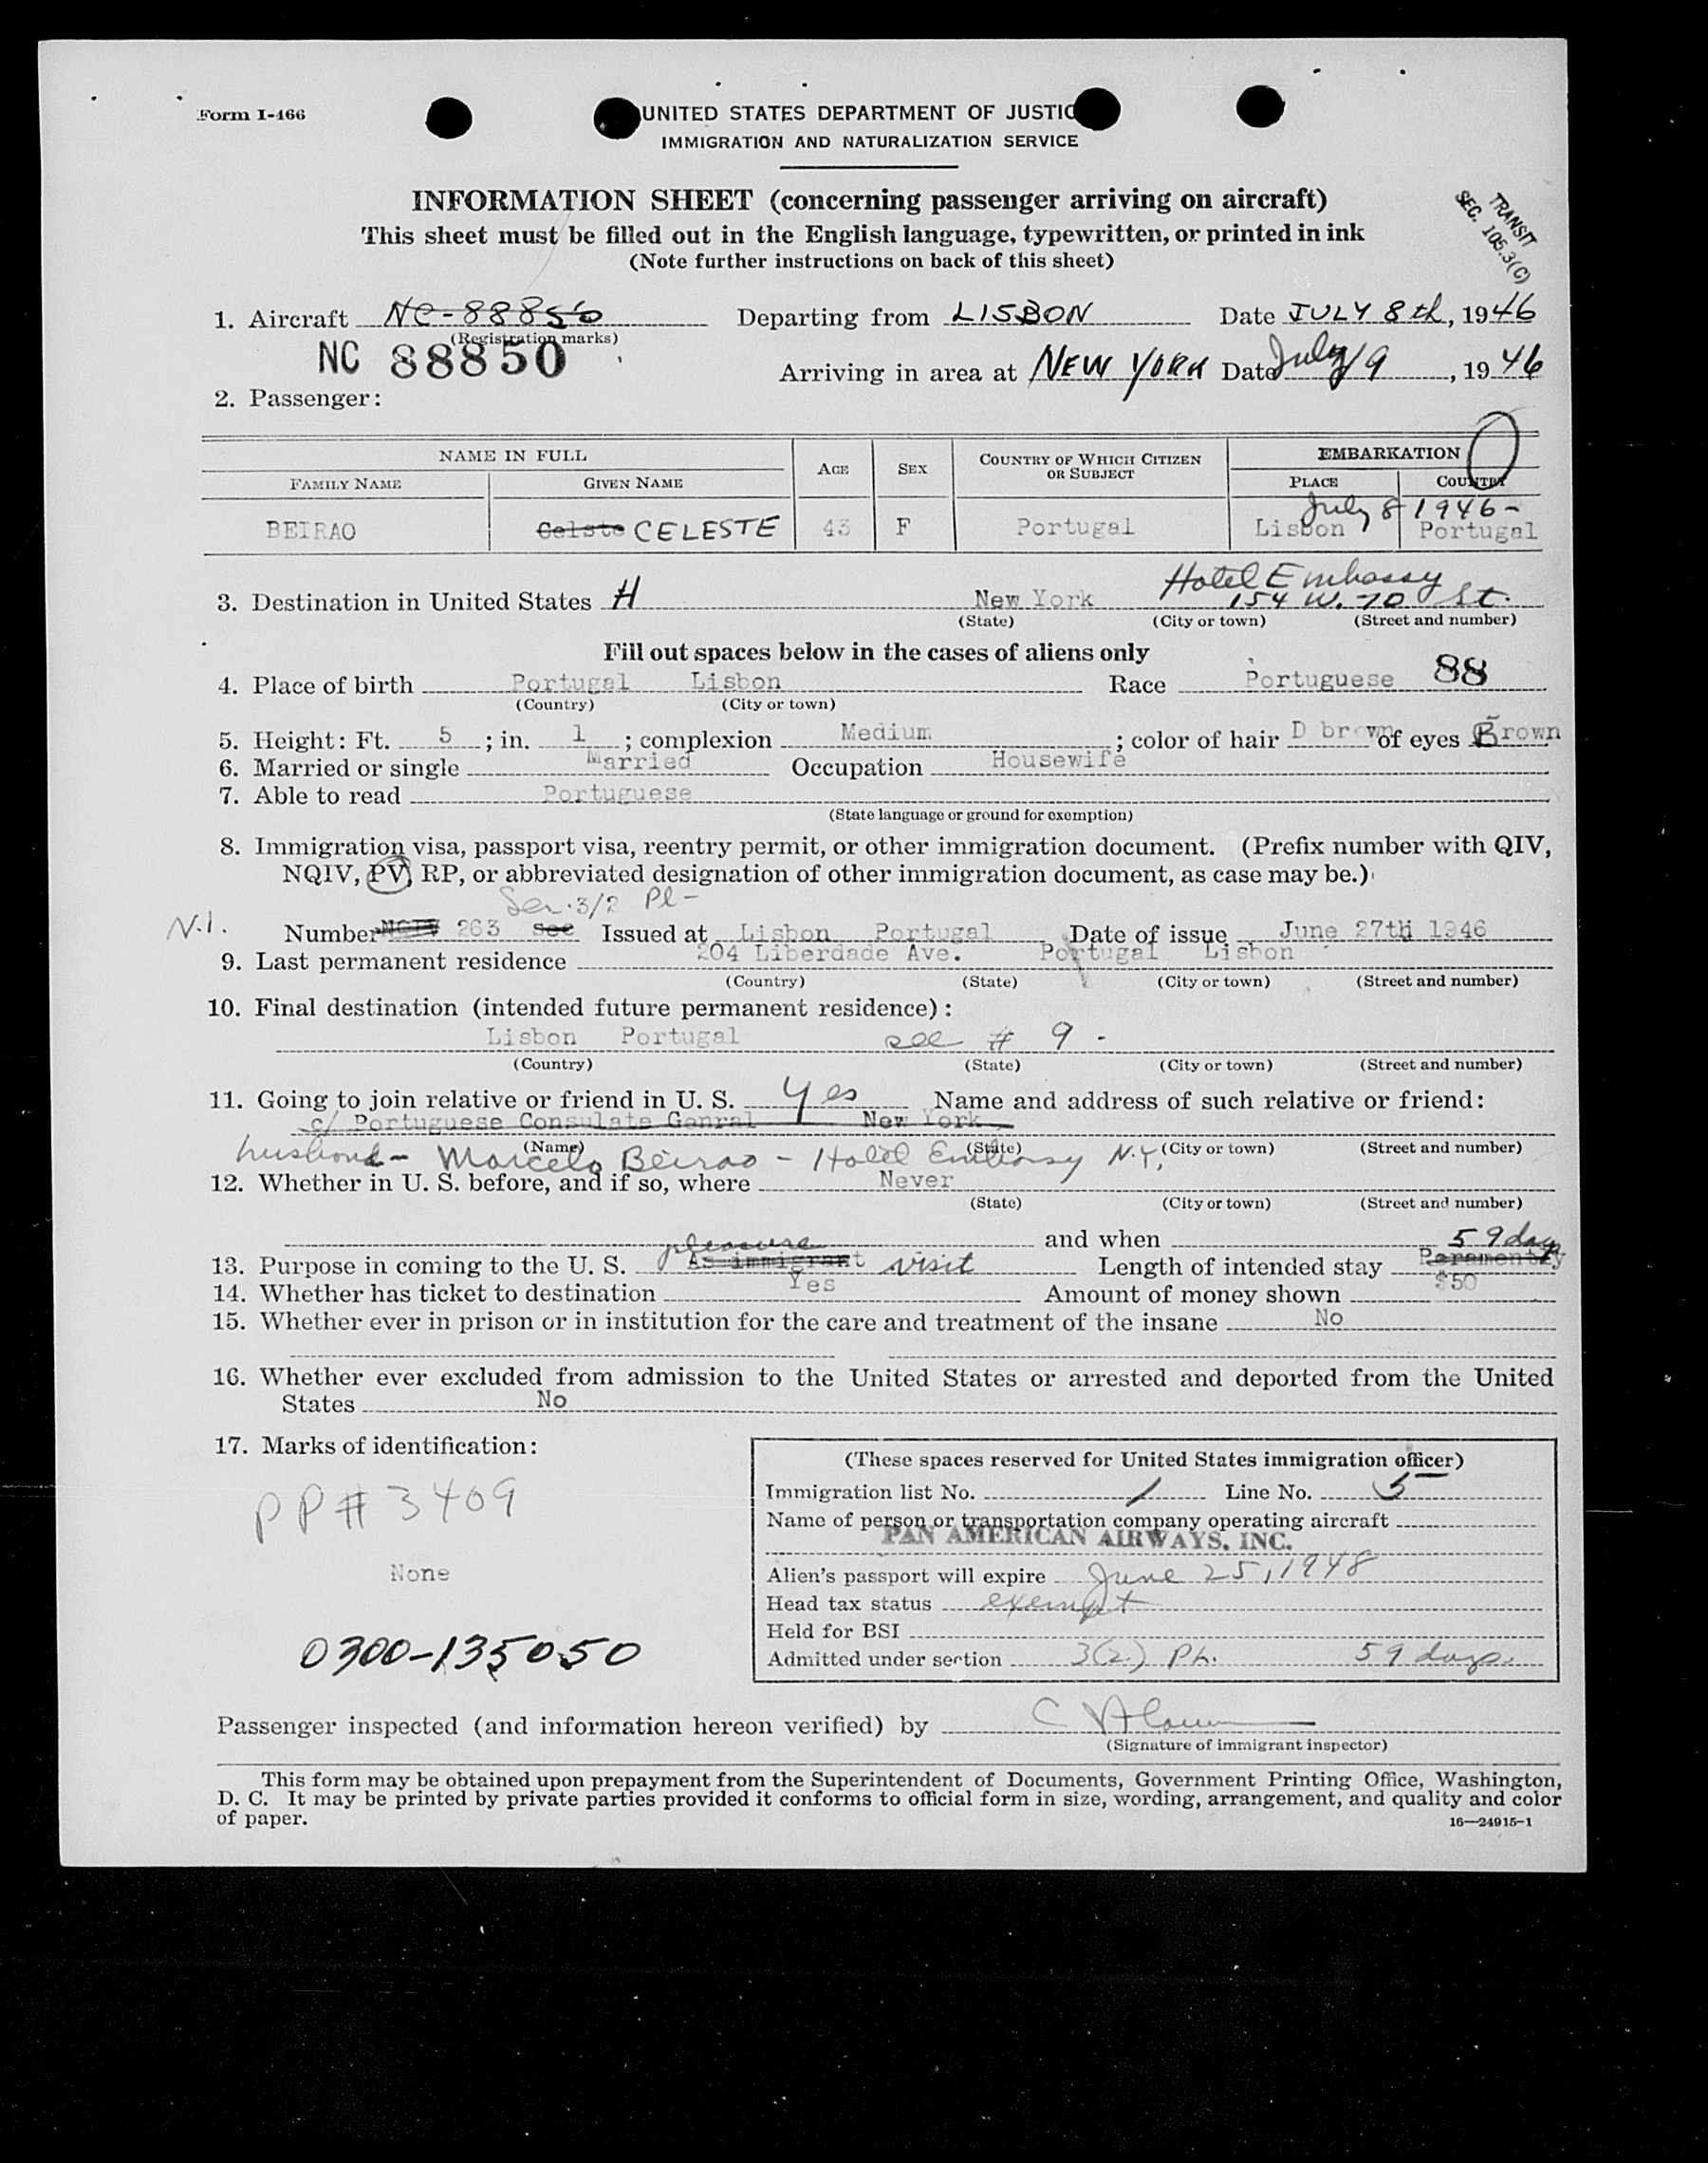 Form I-466
UNITED STATES DEPARTMENT OF JUSTIC
IMMIGRATION AND NATURALIZATION SERVICE
INFORMATION SHEET (concerning passenger arriving on aircraft)
This sheet must be filled out in the English language, typewritten, or printed in ink
(Note further instructions on back of this sheet)
TRANSIT
SEC. 105.3(C)
1. Aircraft NC-88850 Departing from LISBON Date JULY 8th, 1946
(Registration marks)
NC 88850
Arriving in area at NEW YORK Date July 9, 1946
2. Passenger:
NAME IN FULL AGE SEX COUNTRY OF WHICH CITIZEN OR SUBJECT EMBARKATION
FAMILY NAME GIVEN NAME PLACE COUNTRY
July 8 1946-
BEIRAO Celste CELESTE 43 F Portugal Lisbon Portugal
Hotel Embassy
3. Destination in United States H New York 154 W. 70 St.
(State) (City or town) (Street and number)
Fill out spaces below in the cases of aliens only
4. Place of birth Portugal Lisbon Race Portuguese 88
(Country) (City or town)
5. Height: Ft. 5; in. 1; complexion Medium; color of hair D brown of eyes Brown
6. Married or single Married Occupation Housewife
7. Able to read Portuguese
(State language or ground for exemption)
8. Immigration visa, passport visa, reentry permit, or other immigration document. (Prefix number with QIV,
NQIV, PV, RP, or abbreviated designation of other immigration document, as case may be.)
3/2 Pl-
N.I. Number 263 Sec Issued at Lisbon Portugal Date of issue June 27th 1946
9. Last permanent residence 204 Liberdade Ave. Portugal Lisbon
(Country) (State) (City or town) (Street and number)
10. Final destination (intended future permanent residence):
Lisbon Portugal see # 9 -
(Country) (State) (City or town) (Street and number)
11. Going to join relative or friend in U. S. Yes Name and address of such relative or friend:
c/ Portuguese Consulate Genral New York
(Name) (State) (City or town) (Street and number)
husband - Marcelo Beirao - Hotel Embassy N.Y.
12. Whether in U. S. before, and if so, where Never
(State) (City or town) (Street and number)
and when
pleasure 59 days
13. Purpose in coming to the U. S. As immigrant visit Length of intended stay Peramently
14. Whether has ticket to destination Yes Amount of money shown $50
15. Whether ever in prison or in institution for the care and treatment of the insane No
16. Whether ever excluded from admission to the United States or arrested and deported from the United
States No
17. Marks of identification:
PP# 3409
None
0300-135050
(These spaces reserved for United States immigration officer)
Immigration list No. 1 Line No. 5
Name of person or transportation company operating aircraft
PAN AMERICAN AIRWAYS, INC.
Alien's passport will expire June 25, 1948
Head tax status exempt
Held for BSI
Admitted under section 3(2) Ph. 59 days.
Passenger inspected (and information hereon verified) by
(Signature of immigrant inspector)
This form may be obtained upon prepayment from the Superintendent of Documents, Government Printing Office, Washington,
D. C. It may be printed by private parties provided it conforms to official form in size, wording, arrangement, and quality and color
of paper.
16—24915-1